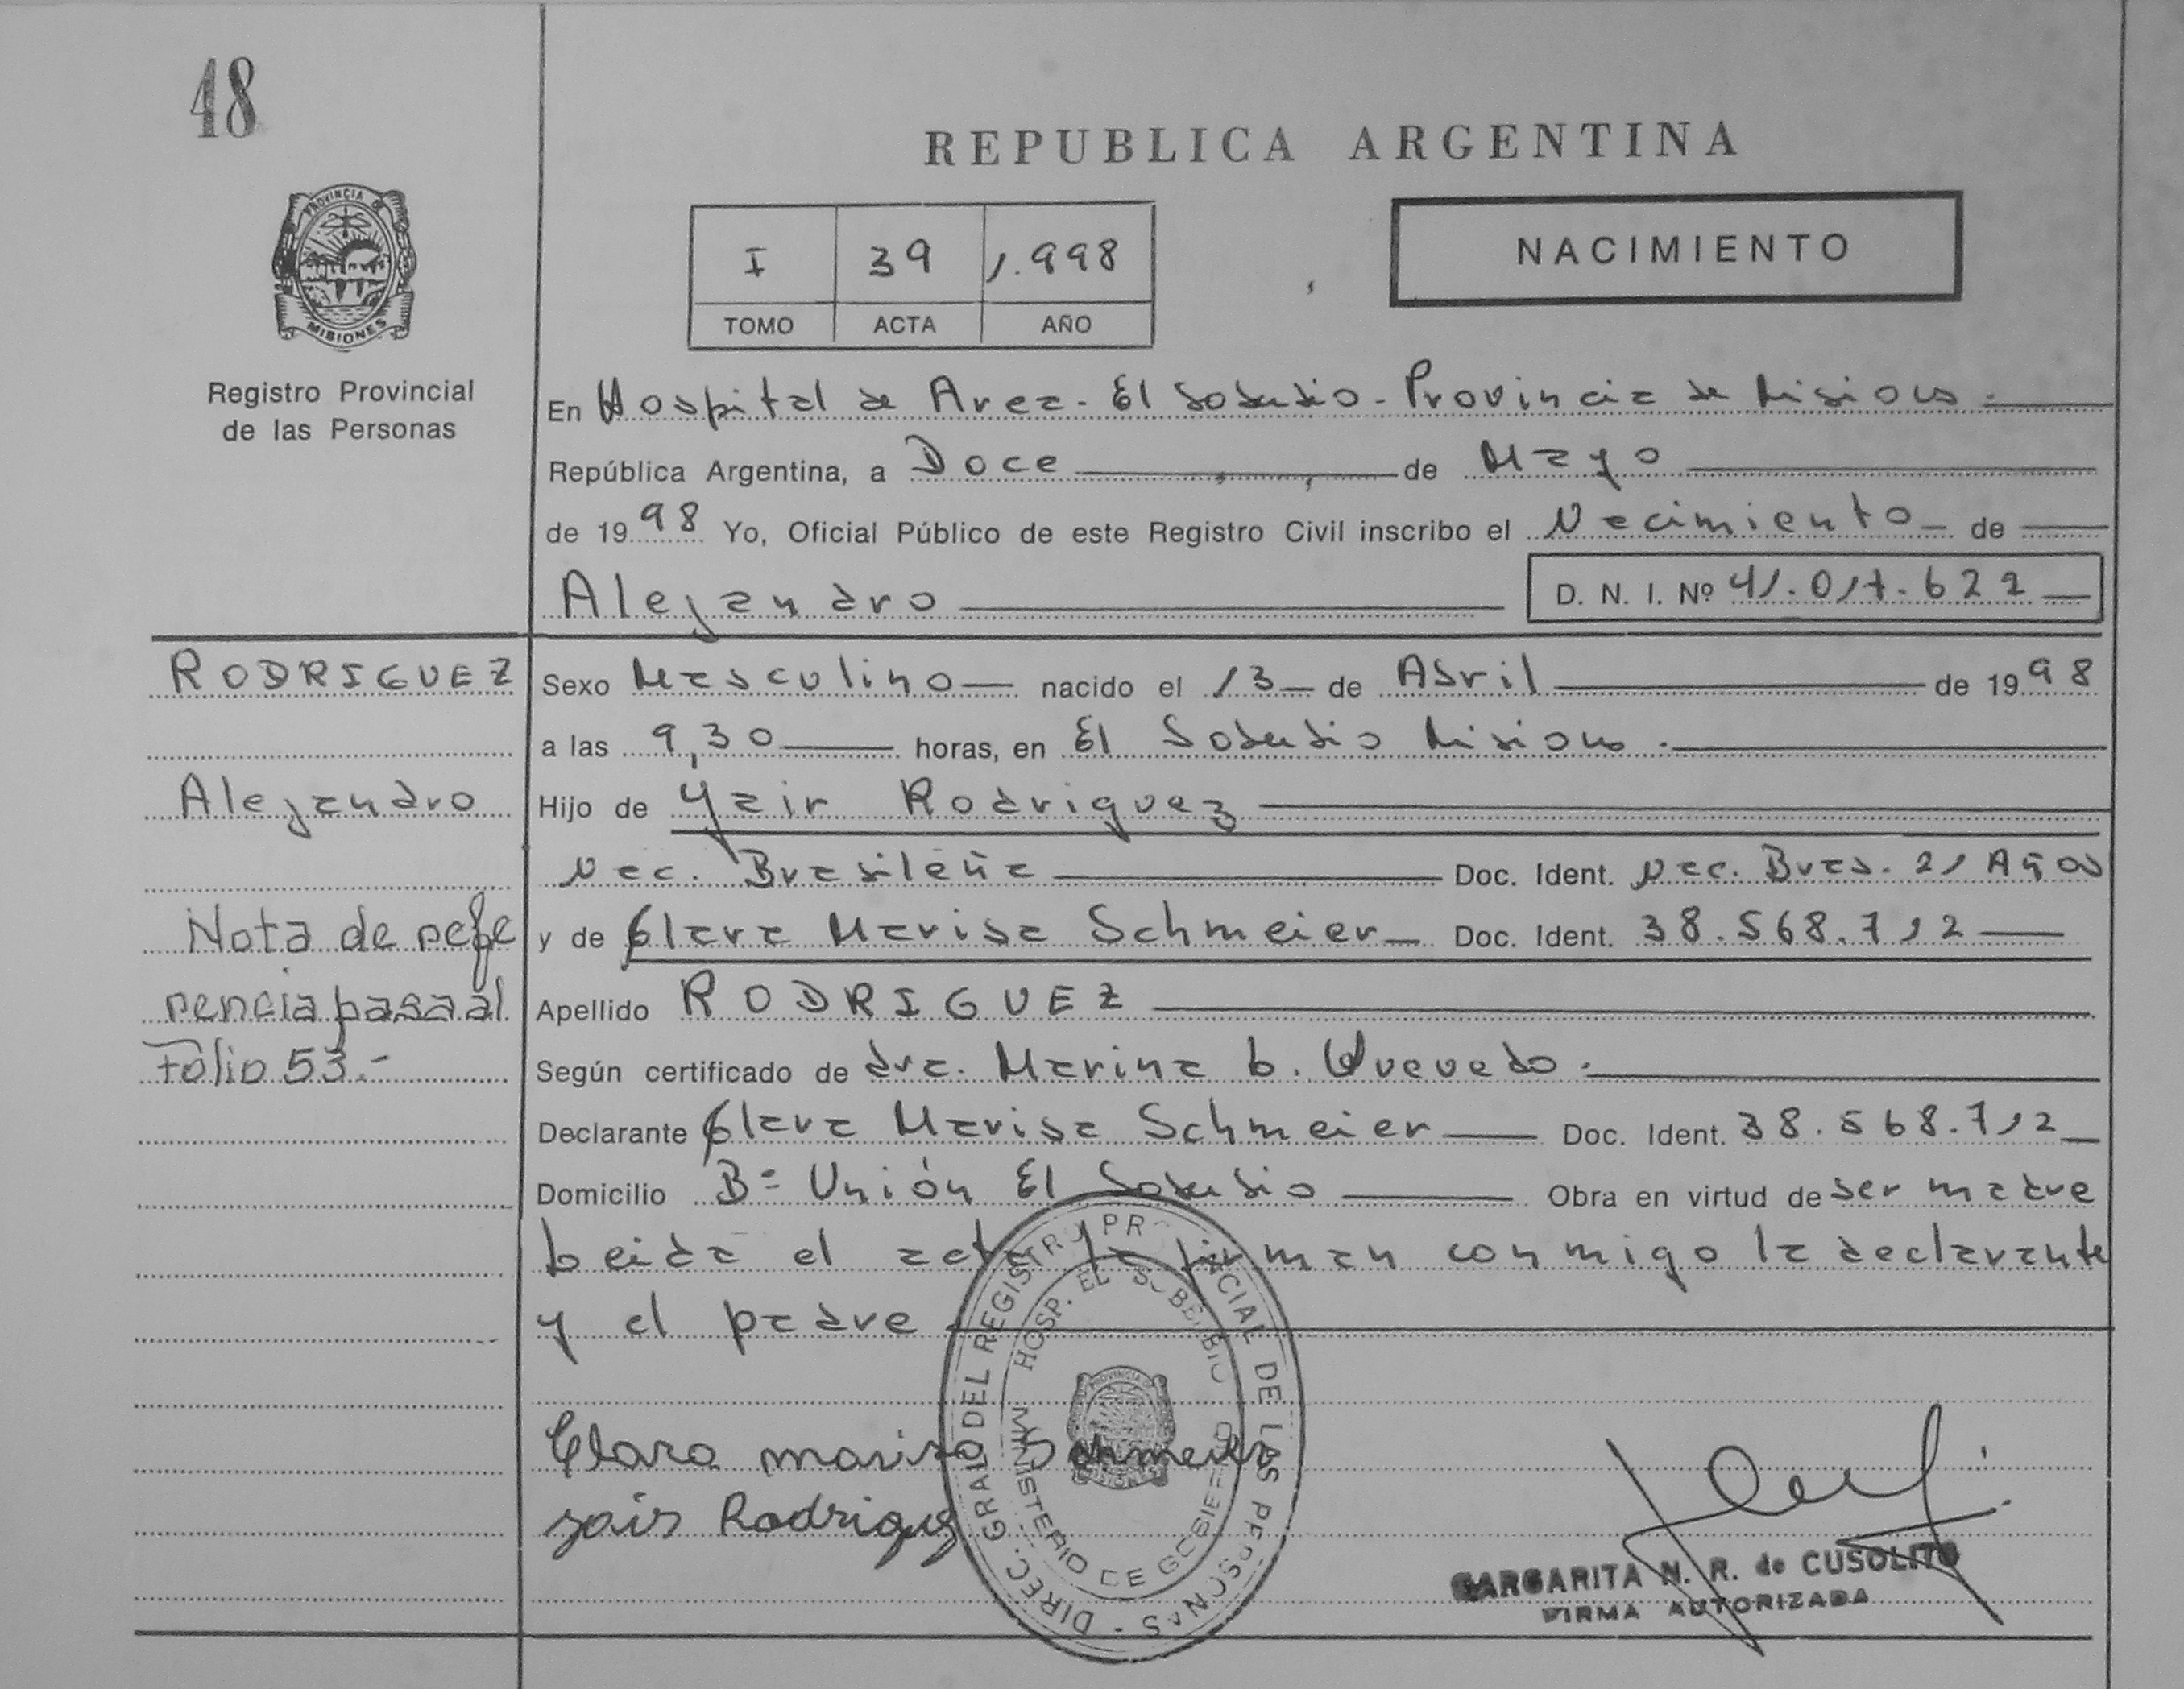 48
REPUBLICA ARGENTINA
I 39 1.998
TOMO ACTA AÑO
NACIMIENTO
PROVINCIA DE
MISIONES
Registro Provincial
de las Personas
En Hospital de Area - El Soberbio - Provincia de Misiones.
República Argentina, a Doce de Mayo
de 1998 Yo, Oficial Público de este Registro Civil inscribo el Nacimiento de
Alejandro D. N. I. Nº 41.017.622
RODRIGUEZ
Alejandro
Nota de refe
rencia pasa al
Folio 53.-
Sexo Masculino nacido el 13 de Abril de 1998
a las 9,30 horas, en El Soberbio Misiones.
Hijo de Yair Rodriguez
Nac. Brasileña Doc. Ident. Nac. Bras. 21 Años
y de Clara Marisa Schmeier Doc. Ident. 38.568.712
Apellido RODRIGUEZ
Según certificado de dra. Marina b. Quevedo.
Declarante Clara Marisa Schmeier Doc. Ident. 38.568.712
Domicilio Bº Unión El Soberbio Obra en virtud de ser madre
Leida el acta la firman conmigo la declarante
y el padre
Clara marisa Schmeier
DIREC. GRAL DEL REGISTRO PROVINCIAL DE LAS PERSONAS -
HOSP. EL SOBERBIO
MINISTERIO DE GOBIERNO
MARGARITA N. R. de CUSOLITO
FIRMA AUTORIZADA